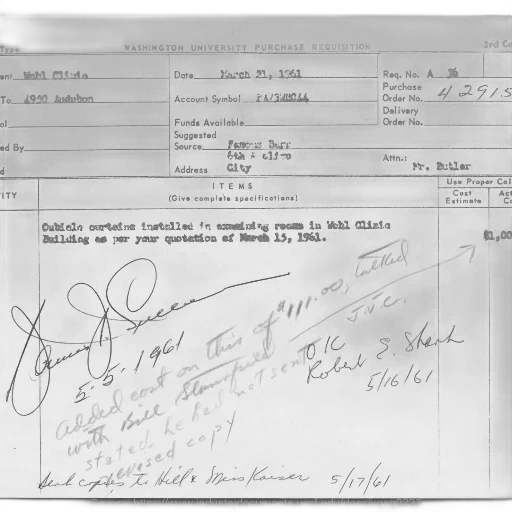 Type WASHINGTON UNIVERSITY PURCHASE REQUISITION 3rd Co
ent Wohl Clinic Date March 21, 1961 Req. No. A 36
To 4950 Audubon Account Symbol Purchase Order No. 42915
Funds Available Delivery Order No.
ed By Suggested Source Famous Barr
6th & Olive Attn.: Mr. Butler
d Address City
ITY ITEMS Use Proper Col
(Give complete specifications) Cost Estimate Act C
Cubicle curtains installed in examining rooms in Wohl Clinic $1,00
Building as per your quotation of March 15, 1961.
5.5.1961
added cost on this of $111.00, talked
with Bill J.V.C.
stated he had not sent
revised copy
OK
Robert E. Shank
5/16/61
Sent copies to Hill & Miss Kaiser 5/17/61